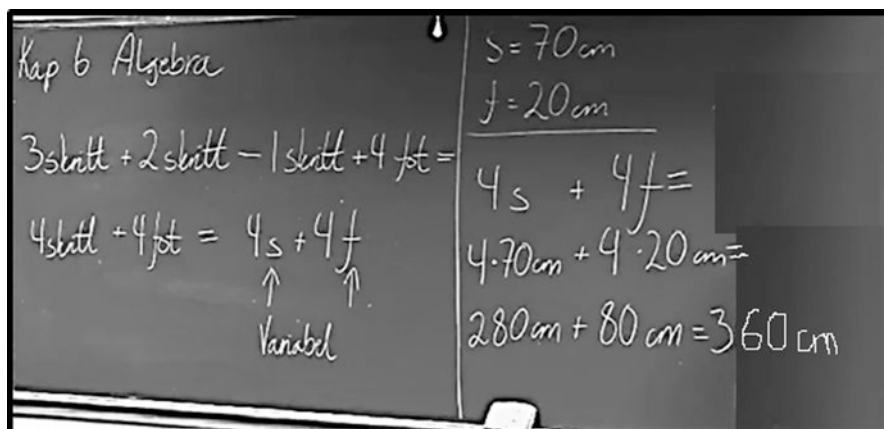 Kap 6 Algebra
3skritt + 2skritt - 1skritt + 4 fot =
4skritt + 4fot = 4s + 4f
↑ ↑
Variabel
s = 70cm
f = 20cm
4s + 4f =
4·70cm + 4·20cm =
280cm + 80cm = 360cm